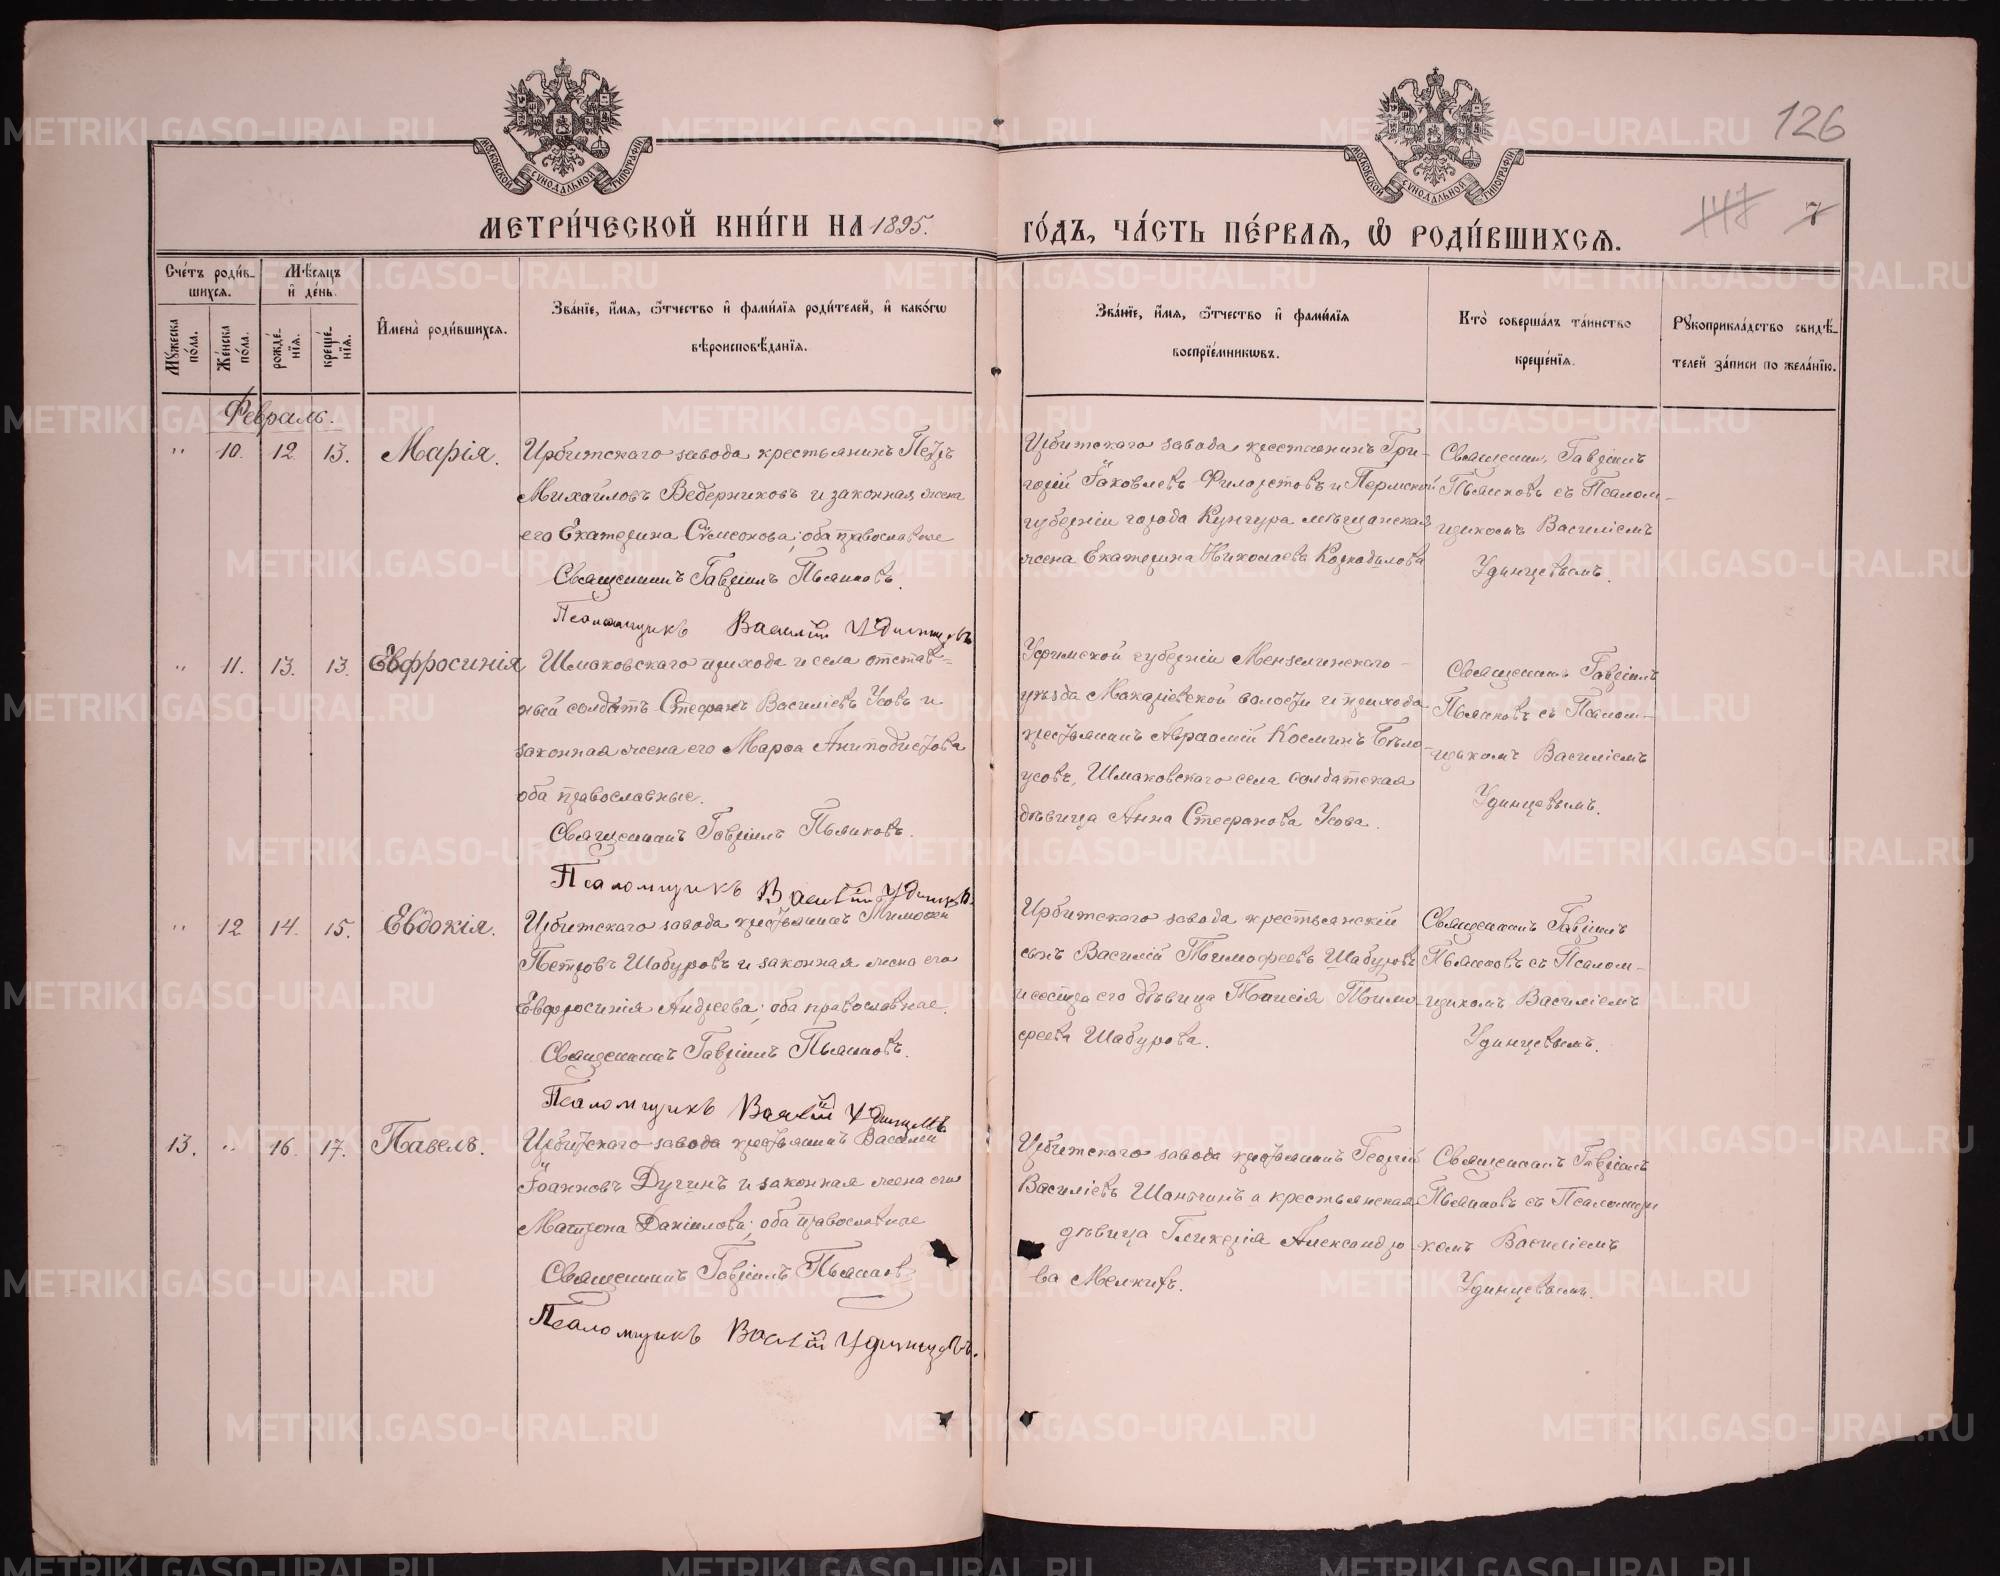 126
147 7
МОСКОВСКОЙ СѴНОДАЛЬНОЙ ТИПОГРАФІИ
МОСКОВСКОЙ СѴНОДАЛЬНОЙ ТИПОГРАФІИ
МЕТРИ́ЧЕСКОЙ КНИ́ГИ НА 1895.
ГО́ДЪ, ЧА́СТЬ ПЕ́РВАЯ, Ѽ РОДИ́ВШИХСЯ.
Сче́тъ роди́в-
шихся.
Мꙋжеска по́ла.
Же́нска по́ла.
Мѣ́сяцъ
и де́нь.
рожде́-
нїя.
креще́-
нїя.
Имена̀ роди́вшихся.
Зва́нїе, и́мя, ѻ́тчество и фами́лїя роди́телей, и како́гѡ
вѣроисповѣ́данїя.
Зва́нїе, и́мя, ѻ́тчество и фами́лїя
воспрїе́мникѡвъ.
Кто̀ соверша́лъ та́инство
креще́нїя.
Рꙋкоприкла́дство свидѣ́-
телей за́писи по жела́нїю.
Февраль.
" 10. 12. 13. Марія.
Ирбитскаго завода крестьянинъ Петръ
Михайловъ Ведерниковъ и законная жена
его Екатерина Сѵмеонова; оба православные
Священникъ Гавріилъ Пьянковъ.
Псаломщикъ Василій Удинцевъ
Ирбитскаго завода крестьянинъ Гри-
горій Іаковлевъ Филаретовъ и Пермской
губерніи города Кунгура мѣщанская
жена Екатерина Николаева
Священник Гавріилъ
Пьянковъ съ Псалом-
щикомъ Василіемъ
Удинцевымъ.
" 11. 13. 13. Евфросинія
Шмаковскаго прихода и села отстав-
ный солдатъ Стефанъ Василіевъ Усовъ и
законная жена его Марѳа Аниподистова
оба православные.
Священникъ Гавріилъ Пьянковъ.
Псаломщикъ Василій Удинцевъ.
Уфимской губерніи Мензелинскаго
уѣзда Макаріевской волости и прихода
крестьянинъ Авраамій Косминъ Бѣло-
усовъ, Шмаковскаго села солдатская
дѣвица Анна Стефанова Усова.
Священникъ Гавріилъ
Пьянковъ съ Псалом-
щикомъ Василіемъ
Удинцевымъ.
" 12 14. 15. Евдокія.
Ирбитскаго завода крестьянинъ Тимоѳей
Петровъ Шабуровъ и законная жена его
Евфросинія Андреева; оба православные.
Священникъ Гавріилъ Пьянковъ.
Псаломщикъ Василій Удинцевъ.
Ирбитскаго завода крестьянскій
сынъ Василій Тимофеевъ Шабуровъ
и сестра его дѣвица Таисія Тимо-
феева Шабурова.
Священникъ Гавріилъ
Пьянковъ съ Псалом-
щикомъ Василіемъ
Удинцевымъ.
13. " 16. 17. Павелъ.
Ирбитскаго завода крестьянинъ Василій
Іоанновъ Дугинъ и законная жена его
Матрона Даніилова; оба православные
Священникъ Гавріилъ Пьянковъ
Псаломщикъ Василій Удинцевъ.
Ирбитскаго завода крестьянинъ Георгій
Василіевъ Шаньгинъ а крестьянская
дѣвица Гликерія Александро-
ва Мелкихъ.
Священникъ Гавріилъ
Пьянковъ съ Псаломщи
комъ Василіемъ
Удинцевымъ.
METRIKI.GASO-URAL.RU